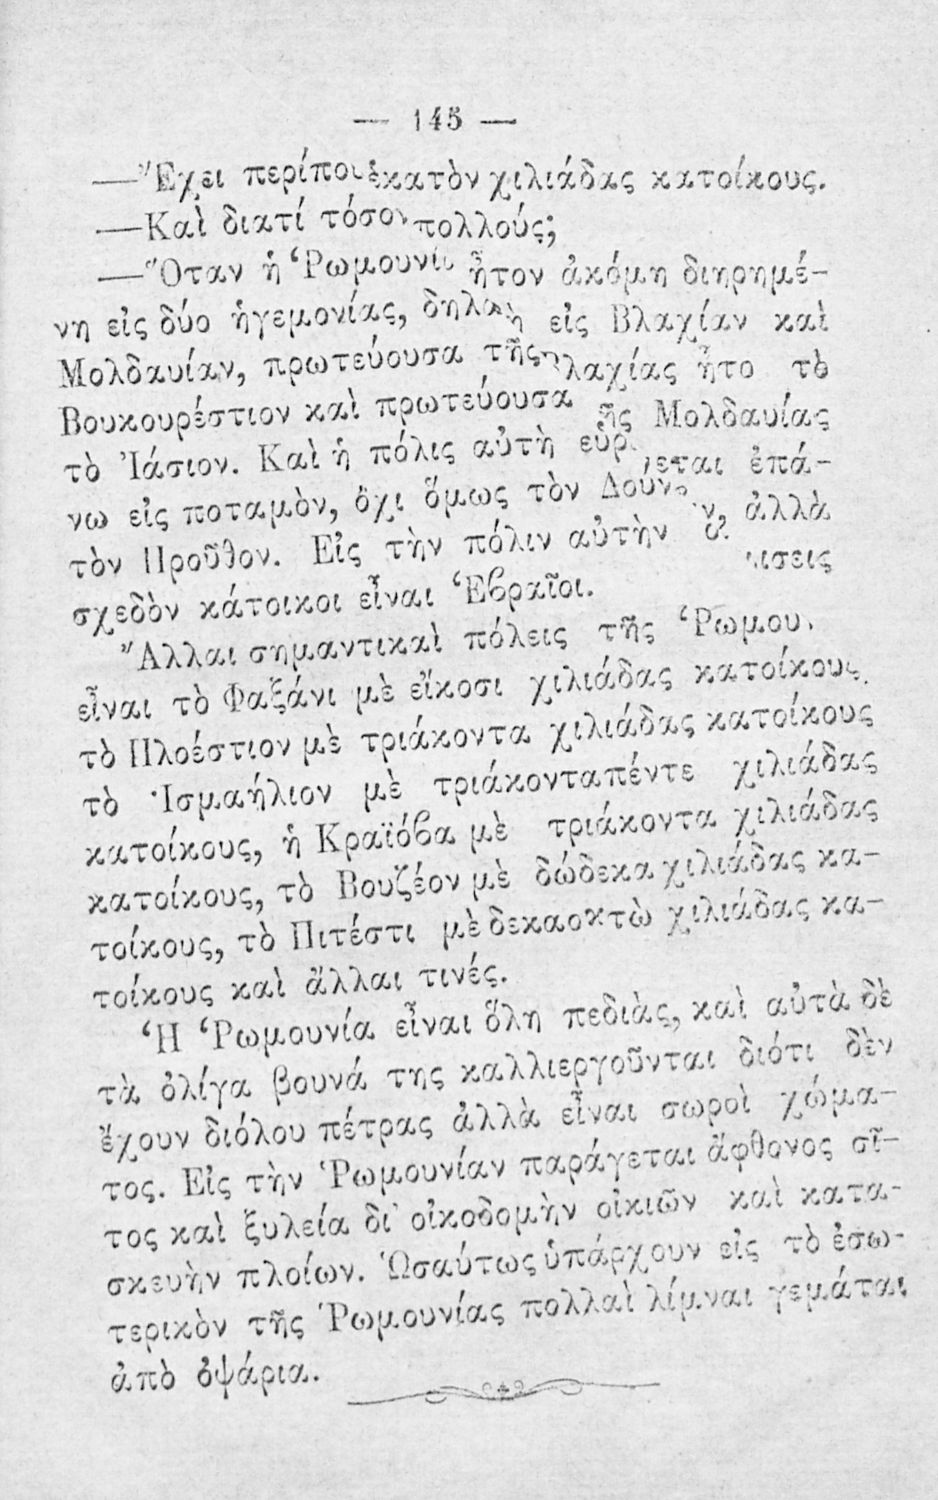 — 145 —
—Ἔχει περίπου ἑκατὸν χιλιάδας κατοίκους.
—Καὶ διατί τόσον πολλούς;
—Ὅταν ἡ Ῥωμουνία ἦτον ἀκόμη διῃρημέ-
νη εἰς δύο ἡγεμονίας, δηλαδὴ εἰς Βλαχίαν καὶ
Μολδαυίαν, πρωτεύουσα τῆς Βλαχίας ἦτο τὸ
Βουκουρέστιον καὶ πρωτεύουσα τῆς Μολδαυίας
τὸ Ἰάσιον. Καὶ ἡ πόλις αὐτὴ εὑρίσκεται ἐπά-
νω εἰς ποταμὸν, ὄχι ὅμως τὸν Δούναβιν, ἀλλὰ
τὸν Προῦθον. Εἰς τὴν πόλιν αὐτὴν οἱ
σχεδὸν κάτοικοι εἶναι Ἑβραῖοι.
Ἄλλαι σημαντικαὶ πόλεις τῆς Ῥωμου
εἶναι τὸ Φαξάνι μὲ εἴκοσι χιλιάδας κατοίκους,
τὸ Πλοέστιον μὲ τριάκοντα χιλιάδας κατοίκους
τὸ Ἰσμαήλιον μὲ τριάκονταπέντε χιλιάδας
κατοίκους, ἡ Κραϊόβα μὲ τριάκοντα χιλιάδας
κατοίκους, τὸ Βουζέον μὲ δώδεκα χιλιάδας κα-
τοίκους, τὸ Πιτέστι μὲ δεκαοκτὼ χιλιάδας κα-
τοίκους καὶ ἄλλαι τινές.
Ἡ Ῥωμουνία εἶναι ὅλη πεδιὰς, καὶ αὐτὰ δὲ
τὰ ὀλίγα βουνά της καλλιεργοῦνται διότι δὲν
ἔχουν διόλου πέτρας ἀλλὰ εἶναι σωροὶ χώμα-
τος. Εἰς τὴν Ῥωμουνίαν παράγεται ἄφθονος σῖ-
τος καὶ ξυλεία δι' οἰκοδομὴν οἰκιῶν καὶ κατα-
σκευὴν πλοίων. Ὡσαύτως ὑπάρχουν εἰς τὸ ἐσω-
τερικὸν τῆς Ῥωμουνίας πολλαὶ λίμναι γεμάται
ἀπὸ ὀψάρια.